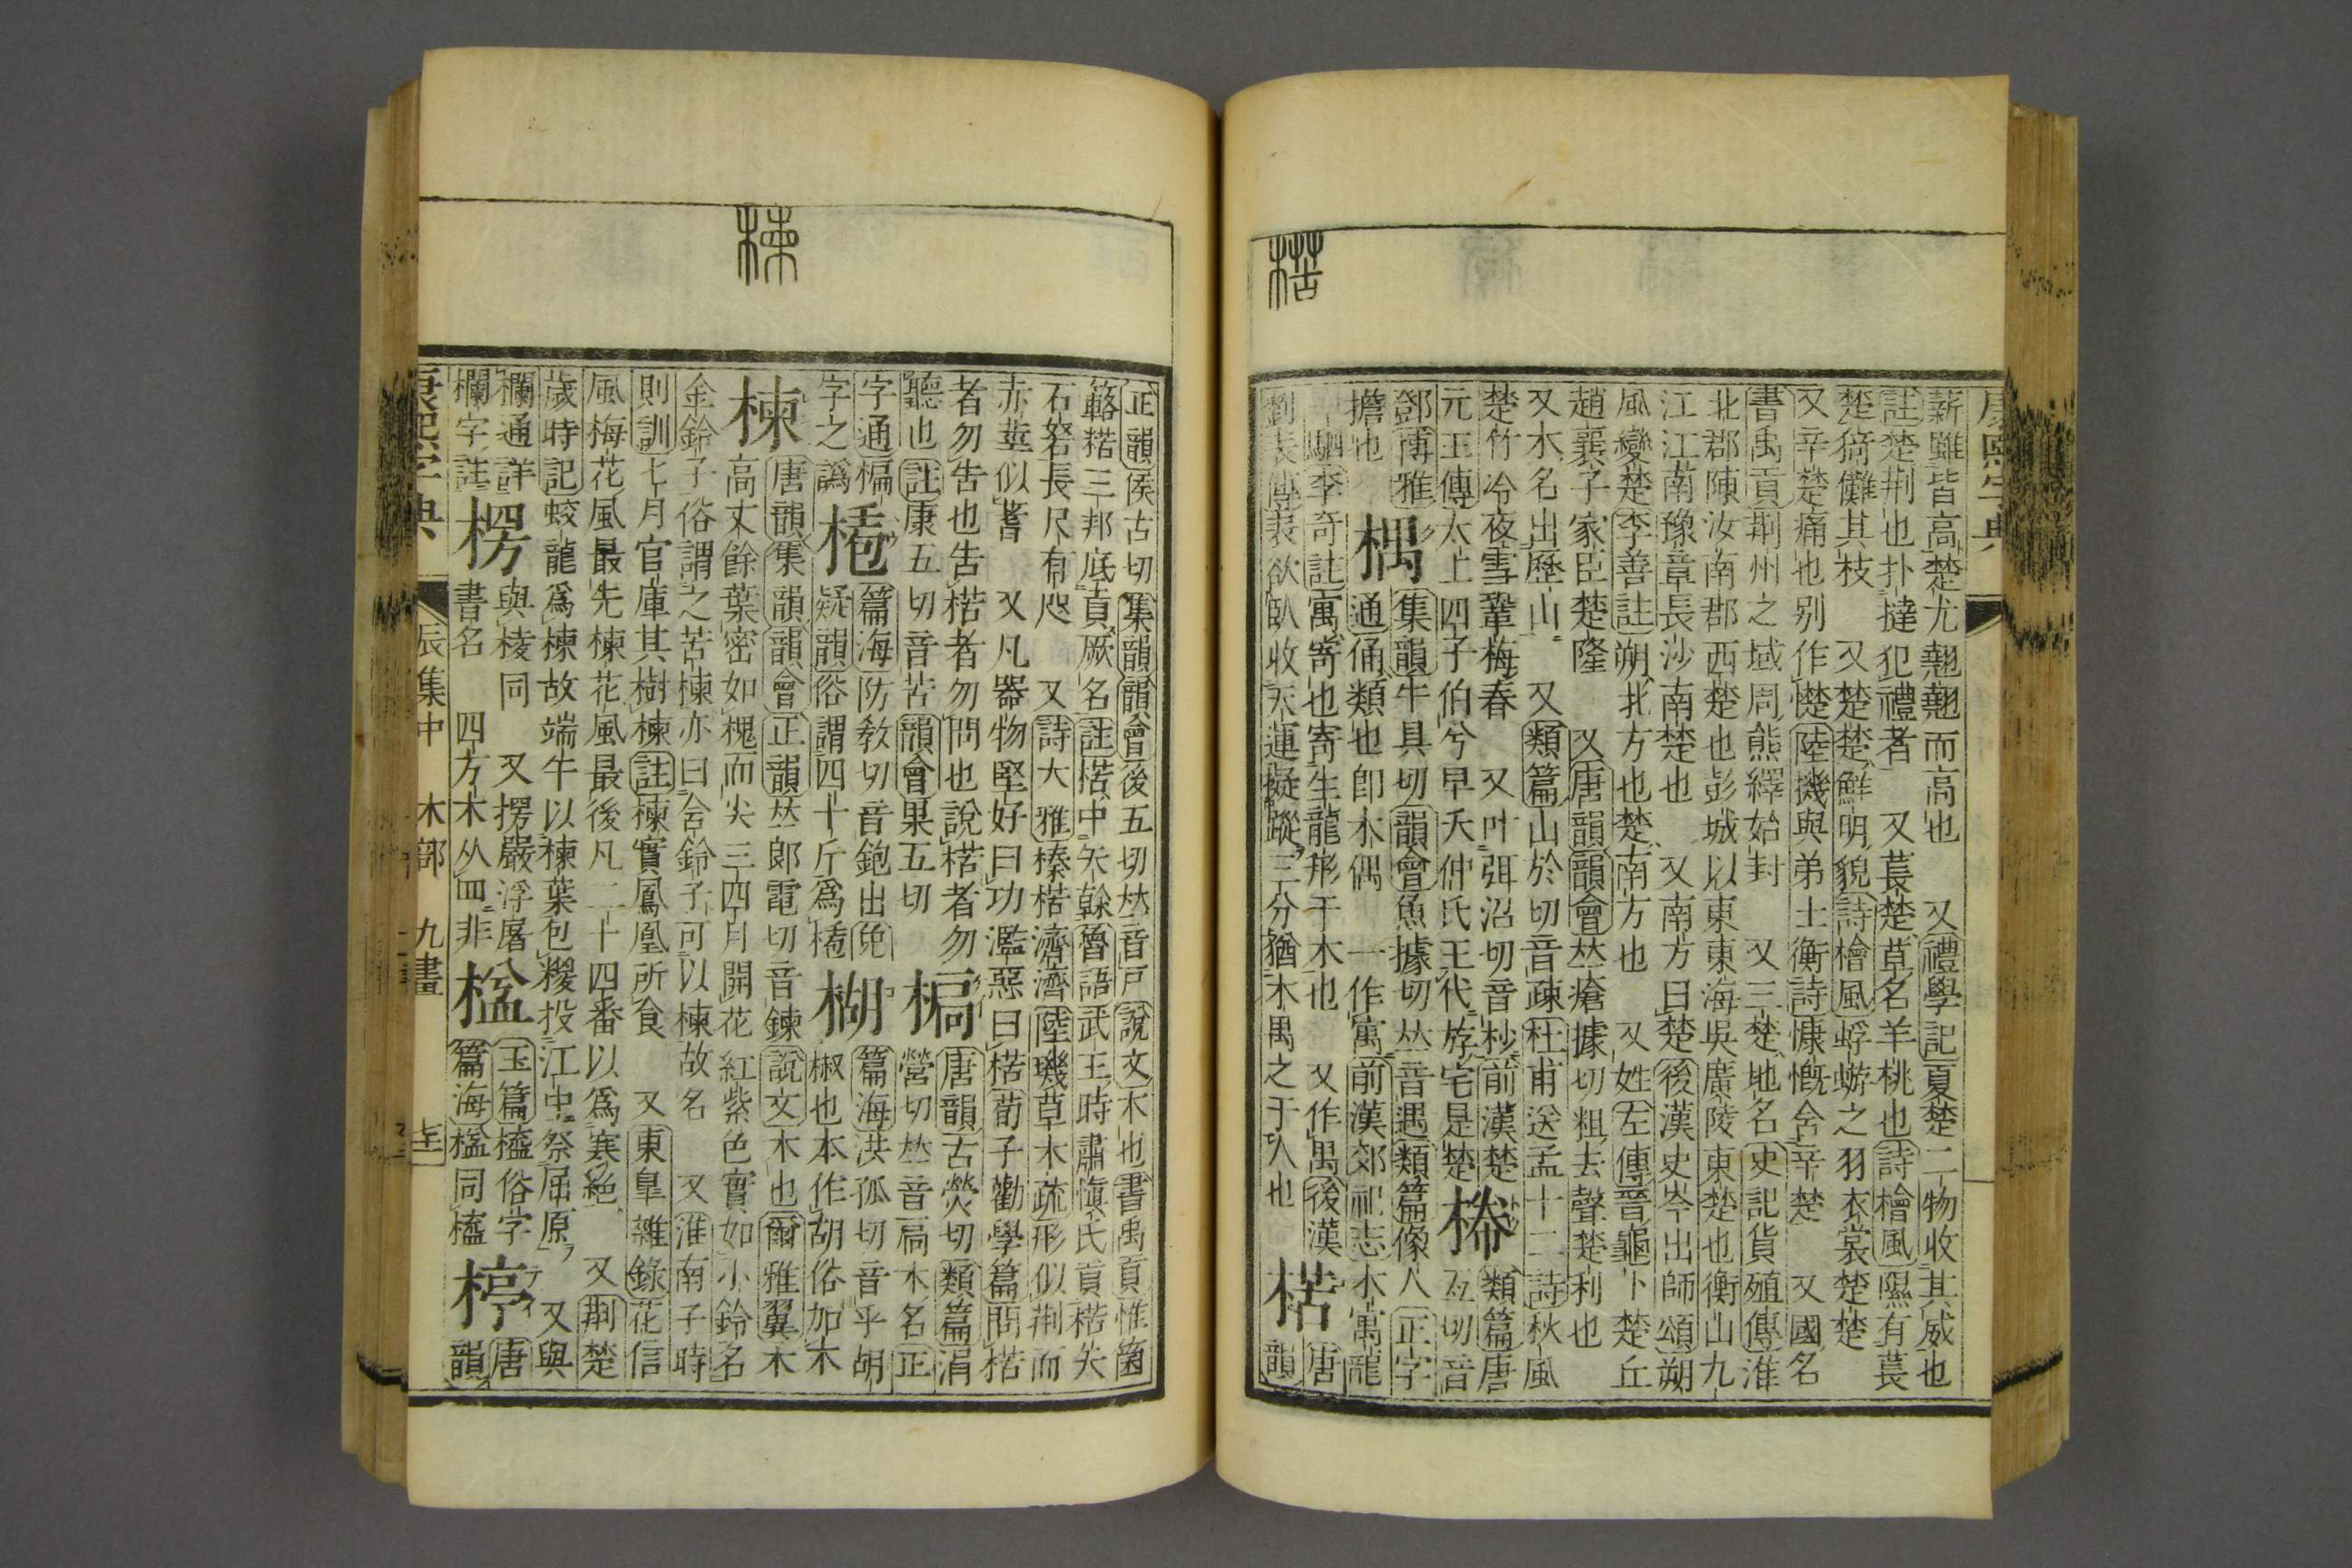 楛
薪雖皆高楚尤翹翹而高也　又禮學記夏楚二物收其威也
註楚荆也扑撻犯禮者　又萇楚草名羊桃也詩檜風隰有萇
楚猗儺其枝　又楚楚鮮明貌詩檜風蜉蝣之羽衣裳楚楚
又辛楚痛也別作憷陸機與弟士衡詩慷慨含辛楚　又國名
書禹貢荆州之域周熊繹始封　又三楚地名史記貨殖傳淮
北郡陳汝南郡西楚也彭城以東東海吳廣陵東楚也衡山九
江江南豫章長沙南楚也　又南方曰楚後漢史岑出師頌朔
風變楚李善註朔北方也楚南方也　又姓左傳晉龜卜楚丘
趙襄子家臣楚隆　又唐韻韻會𠀤瘡據切粗去聲楚利也
又木名出歷山　又類篇山於切音疎杜甫送孟十二詩秋風
楚竹冷夜雪鞏梅春　又叶弭沼切音杪前漢楚
元王傳太上四子伯兮早夭仲氏王代斿宅是楚
類篇唐
五切音
鄧博雅
擔也
楀
集韻牛具切韻會魚據切𠀤音遇類篇像人正字
通俑類也卽木偶　一作寓前漢郊祀志木寓龍
駟李奇註寓寄也寄生龍形于木也　又作禺後漢
劉表傳表欲臥收天運擬蹤三分猶木禺之于人也
楛
唐
韻
康熙字典
楝
正韻侯古切集韻韻會後五切𠀤音戸說文木也書禹貢惟箘
簵楛三邦底貢厥名註楛中矢榦魯語武王時肅愼氏貢楛矢
石砮長尺有咫　又詩大雅榛楛濟濟陸璣草木疏形似荆而
赤莖似蓍　又凡器物堅好曰功濫惡曰楛荀子勸學篇問楛
者勿告也告楛者勿問也說楛者勿
聽也註康五切音苦韻會果五切
楄
唐韻古熒切類篇涓
營切𠀤音扃木名正
字通楄
字之譌
篇海防敎切音鉋出免
疑韻俗謂四十斤爲
楜
篇海洪孤切音乎胡
椒也本作胡俗加木
楝
唐韻集韻韻會正韻𠀤郎電切音鍊說文木也爾雅翼木
高丈餘葉密如槐而尖三四月開花紅紫色實如小鈴名
金鈴子俗謂之苦楝亦曰含鈴子可以楝故名　又淮南子時
則訓七月官庫其樹楝註楝實鳳凰所食　又東皐雜錄花信
風梅花風最先楝花風最後凡二十四番以爲寒絕　又荆楚
歲時記蛟龍爲楝故端午以楝葉包糉投江中祭屈原　又與
欄通詳
欄字註
楞
與棱同　又楞嚴浮屠
書名　四方木从四非
榏
玉篇榏俗字
篇海榏同榏
楟
唐
韻
康熙字典　辰集中　木部　九畫